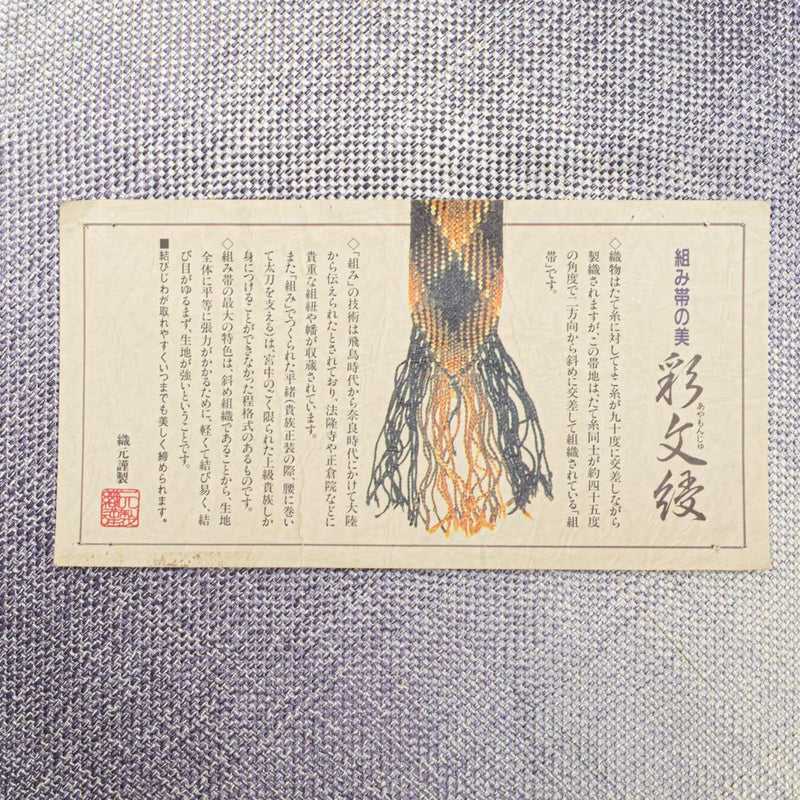 組み帯の美
彩文綬
あやもんじゅ
◇織物はたて糸に対してよこ糸が九十度に交差しながら
製織されますが、この帯地は、たて糸同士が約四十五度
の角度で二方向から斜めに交差して組織されている「組
帯」です。
◇「組み」の技術は飛鳥時代から奈良時代にかけて大陸
から伝えられたとされており、法隆寺や正倉院などに
貴重な組紐や幡が収蔵されています。
また「組み」でつくられた平緒（貴族正装の際、腰に巻い
て太刀を支える）は、宮中のごく限られた上級貴族しか
身につけることができなかった程格式のあるものです。
◇組み帯の最大の特色は、斜め組織であることから、生地
全体に平等に張力がかかるために、軽くて結び易く、結
び目がゆるまず、生地が強いということです。
■結びじわが取れやすくいつまでも美しく締められます。
織元謹製